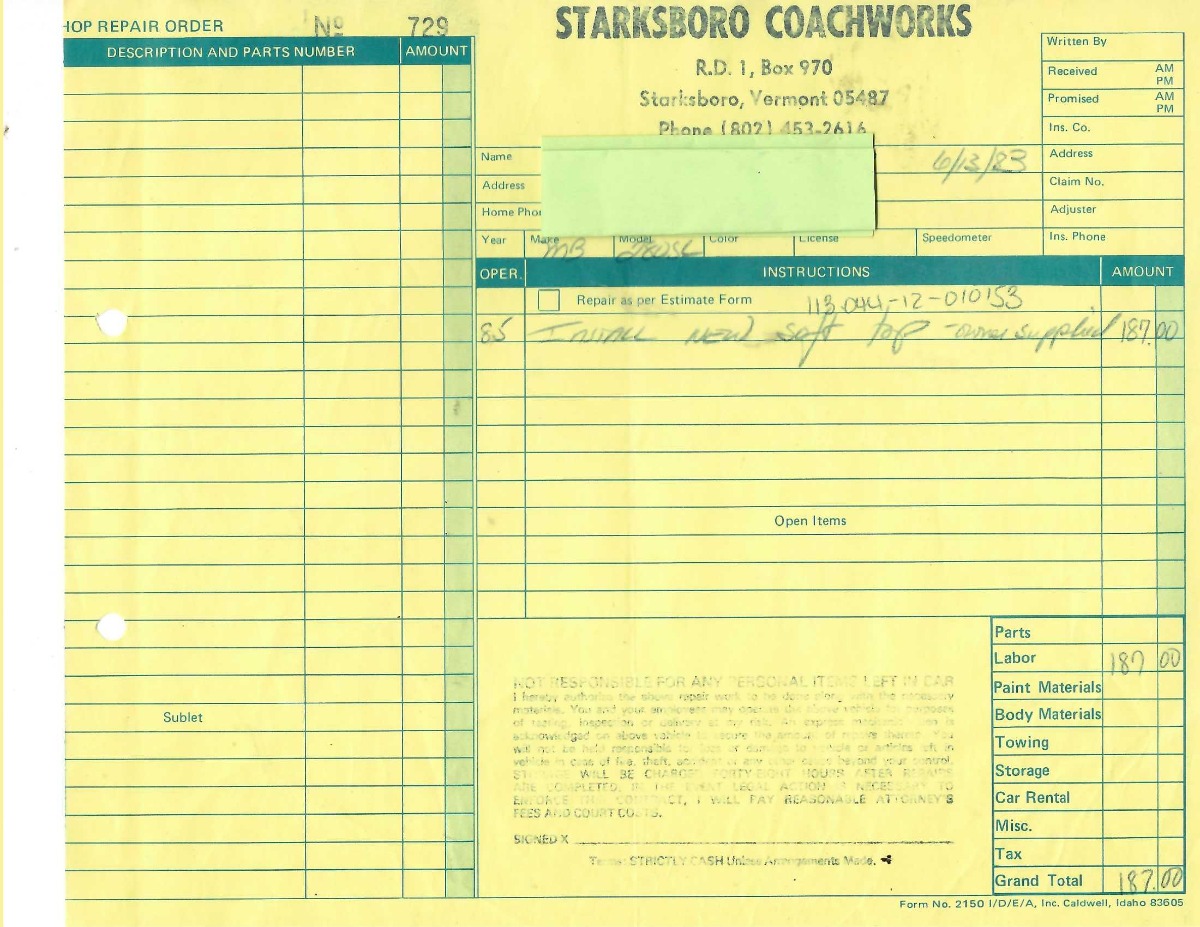 HOP REPAIR ORDER Nº 729
DESCRIPTION AND PARTS NUMBER AMOUNT
Sublet
STARKSBORO COACHWORKS
R.D. 1, Box 970
Starksboro, Vermont 05487
Phone (802) 453-2616
Name 6/13/83
Address
Home Phon
Year Make Model Color License Speedometer
MB 280SL
Written By
Received AM PM
Promised AM PM
Ins. Co.
Address
Claim No.
Adjuster
Ins. Phone
OPER. INSTRUCTIONS AMOUNT
Repair as per Estimate Form 113.044-12-010153
85 INSTALL NEW soft top - owner supplied 187.00
Open Items
NOT RESPONSIBLE FOR ANY PERSONAL ITEMS LEFT IN CAR
I hereby authorize the above repair work to be done along with the necessary
materials. You and your employees may operate the above vehicle for purposes
of testing, inspection or delivery at my risk. An express mechanic's lien is
acknowledged on above vehicle to secure the amount of repairs thereto. You
will not be held responsible for loss or damage to vehicle or articles left in
vehicle in case of fire, theft, accident or any other cause beyond your control.
STORAGE WILL BE CHARGED FORTY-EIGHT HOURS AFTER REPAIRS
ARE COMPLETED. IN THE EVENT LEGAL ACTION IS NECESSARY TO
ENFORCE THIS CONTRACT, I WILL PAY REASONABLE ATTORNEY'S
FEES AND COURT COSTS.
SIGNED X
Terms: STRICTLY CASH Unless Arrangements Made.
Parts
Labor 187 00
Paint Materials
Body Materials
Towing
Storage
Car Rental
Misc.
Tax
Grand Total 187.00
Form No. 2150 I/D/E/A, Inc. Caldwell, Idaho 83605